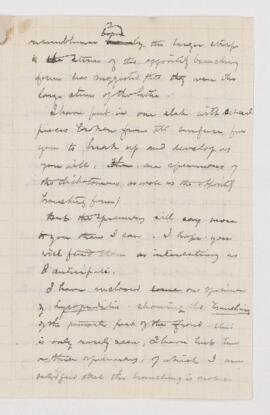 borne
resemblance by the larger strap
to the stems of the oppositely branching
forms has suggested that they were the
large stems of the latter
I have put in one slab with several
pieces broken from the surface, for
you to break up and develop as
you will. are specimens of
the dichotomous, as well as the oppositely
branching form)
But the specimens will say more
to you than I can. I hope you
will find them as interesting as
I anticipate.
I have enclosed one specimen
of showing the branching
of the part of the frond. This
is only rarely seen, I have but two
or three specimens, of which I am
satisfied that the branching is